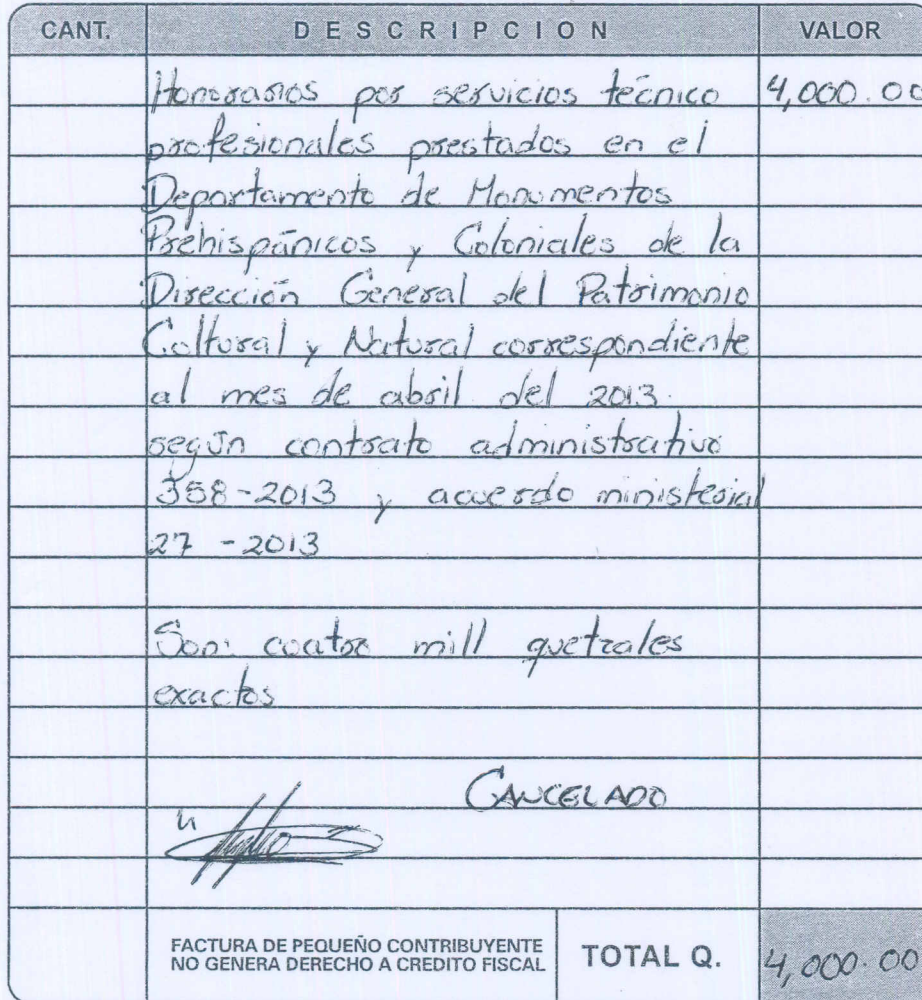 CANT. DESCRIPCION VALOR
Honorarios por servicios técnico 4,000.00
profesionales prestados en el
Departamento de Monumentos
Prehispánicos y Coloniales de la
Dirección General del Patrimonio
Cultural y Natural correspondiente
al mes de abril del 2013.
según contrato administrativo
358-2013 y acuerdo ministerial
27 -2013
Son: cuatro mill quetzales
exactos
CANCELADO
FACTURA DE PEQUEÑO CONTRIBUYENTE
NO GENERA DERECHO A CREDITO FISCAL
TOTAL Q. 4,000.00